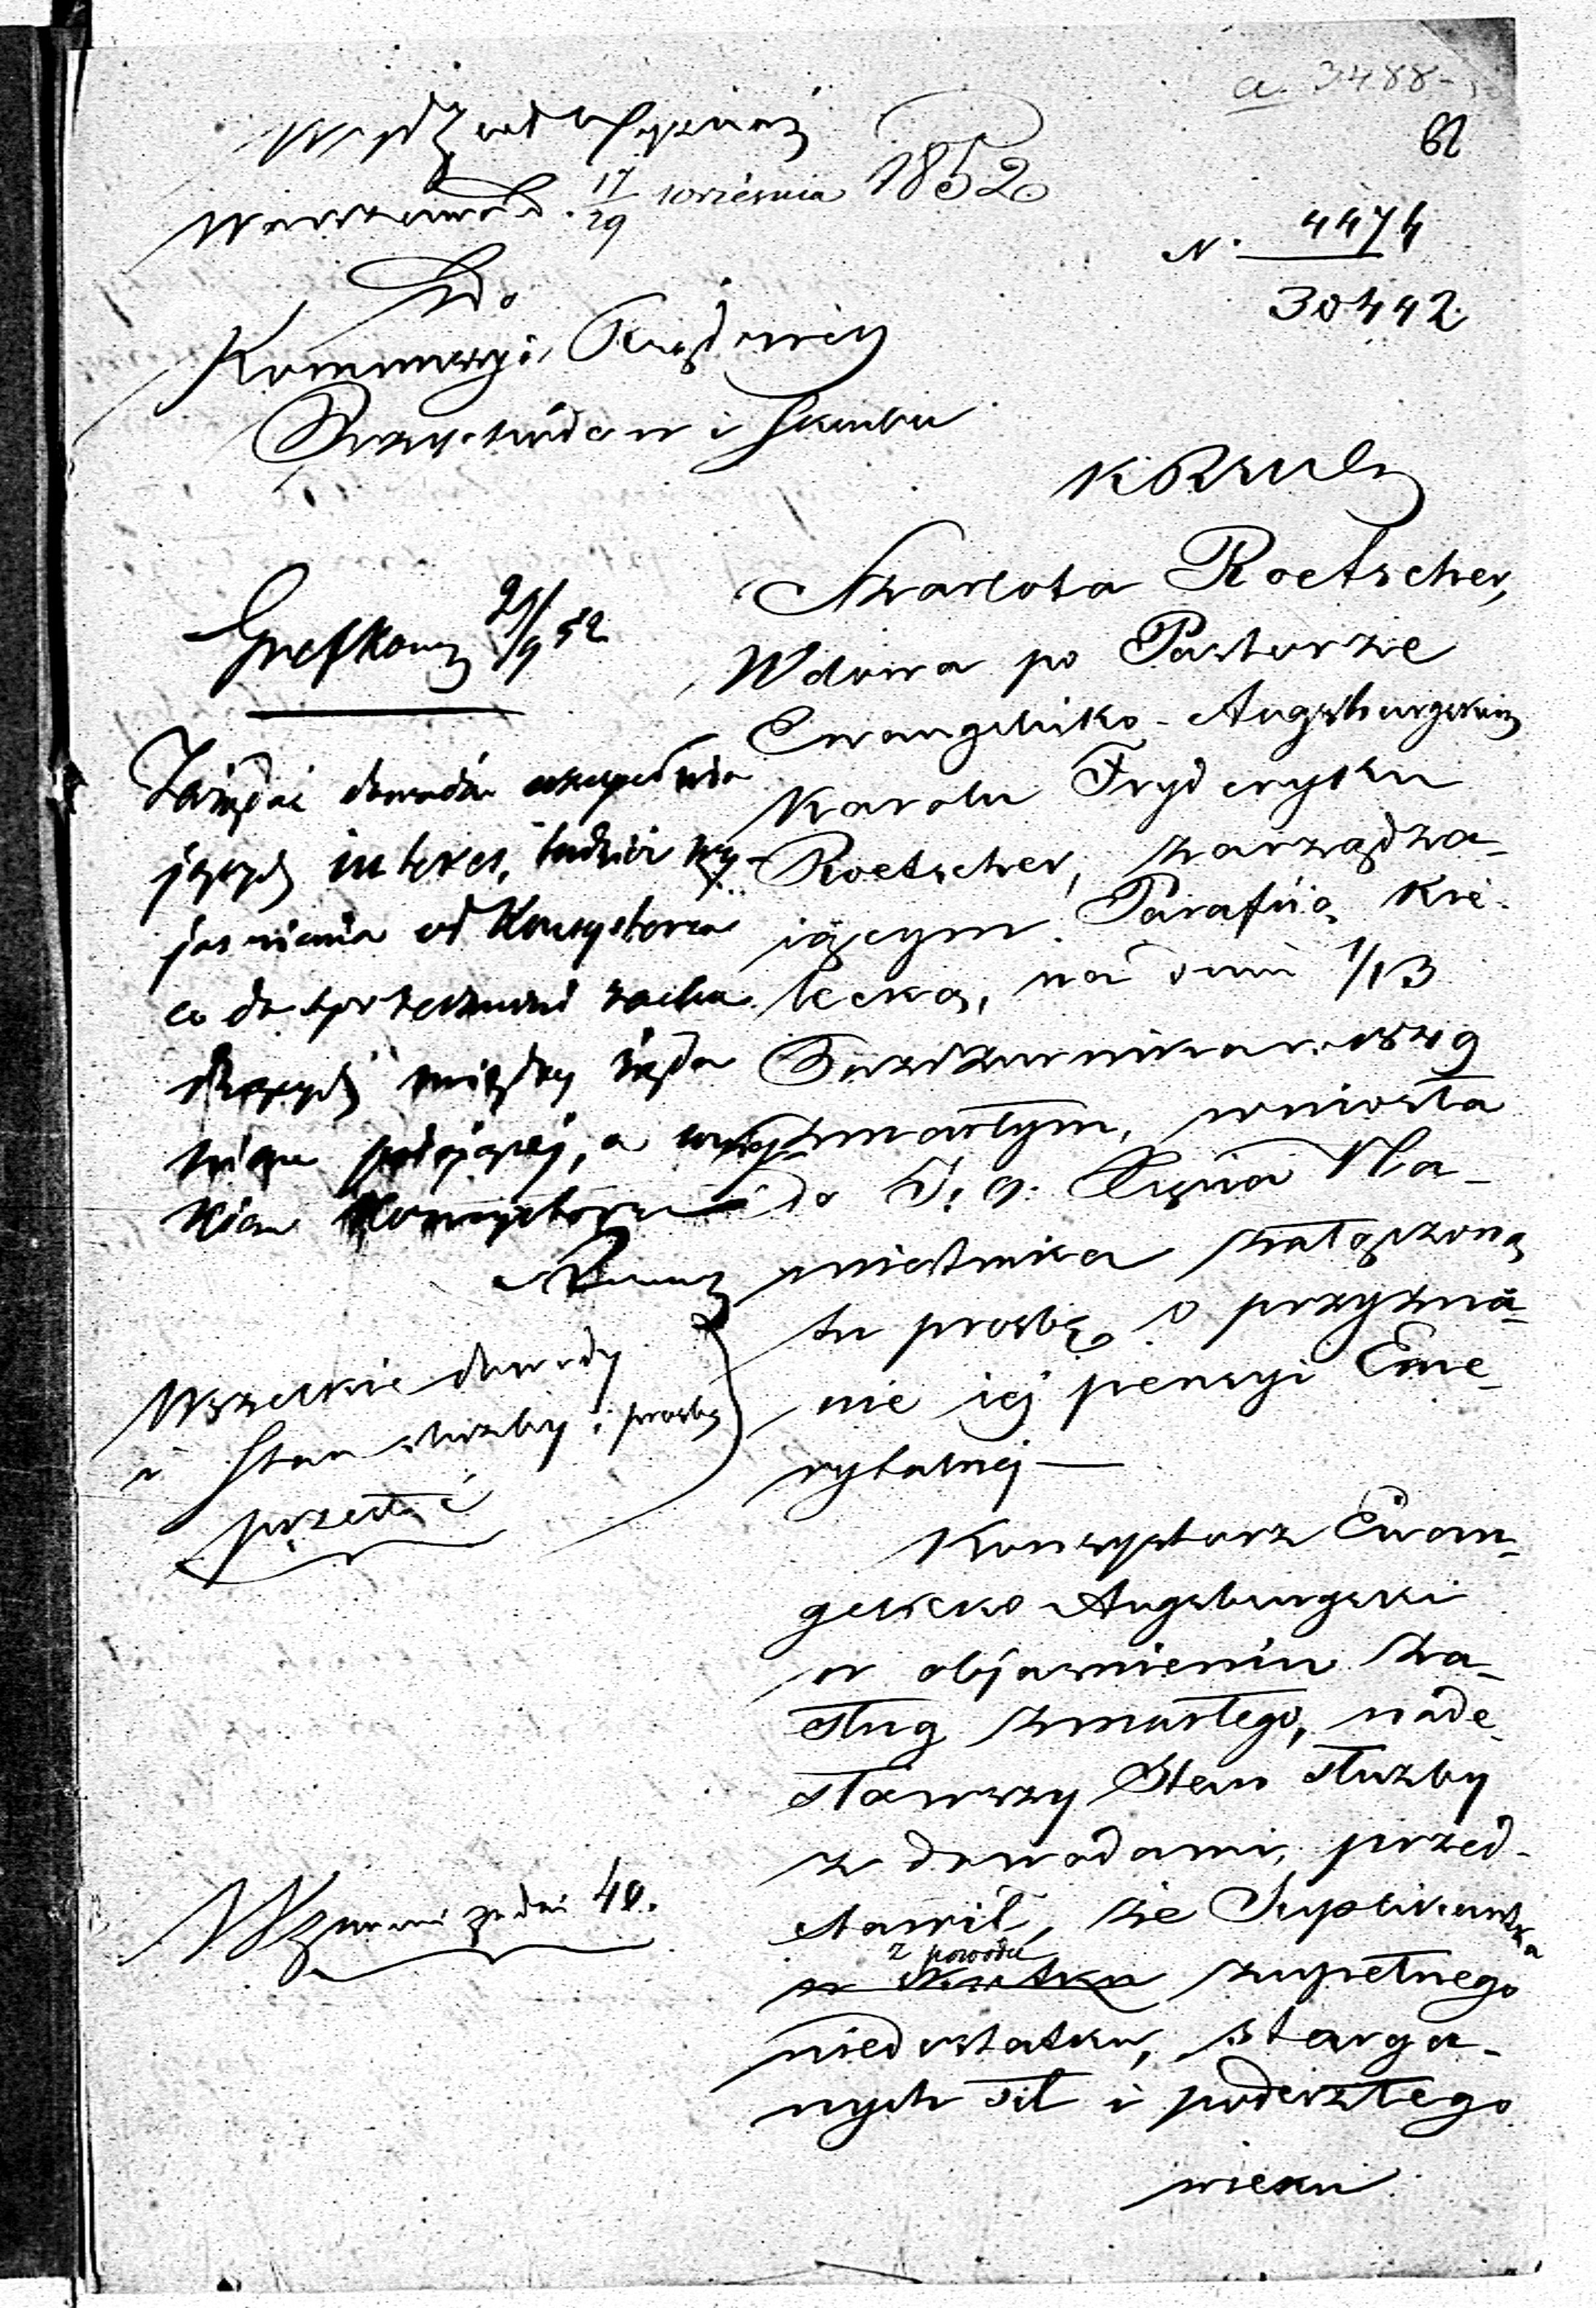 a. 3488
61
Wydz
Warszawa d. 17/29 września 1852
N. 4474
30442
Do
Kommissyi Rządowéj
Przychodów i Skarbu
Szarlota Roetscher,
Wdowa po Pastorze
Ewangelicko-Augsburgskim
Karolu Fryderyku
Roetscher, zarządza-
iącym Parafią Kie-
lecką, na dniu 1/13
Października r. 1849
zmarłym, wniosła
do J. O. Xięcia Na-
miestnika załączoną
tu prośbę o przyzna-
nie iéj pensyi Eme-
rytalnéj —
Konsystorz Ewan-
gelicko Augsburgski
w objaśnieniu za-
sług zmarłego, nade-
sławszy Stan służby
z dowodami, przed-
stawił, że Suplikantka
z powodu
zupełnego
niedostatku, starga-
nych sił i podeszłego
wieku
21/9 52
Zażądać dowodów uzupełnia
jących interes, tudzież wy-
jaśnienia od Konsystorza
co do sprzeczności zacho
dzących między
a
Konsystorza
Wszelkie dowody
i Stan służby i prośbę
przesłać
Wznowić za dni 40.